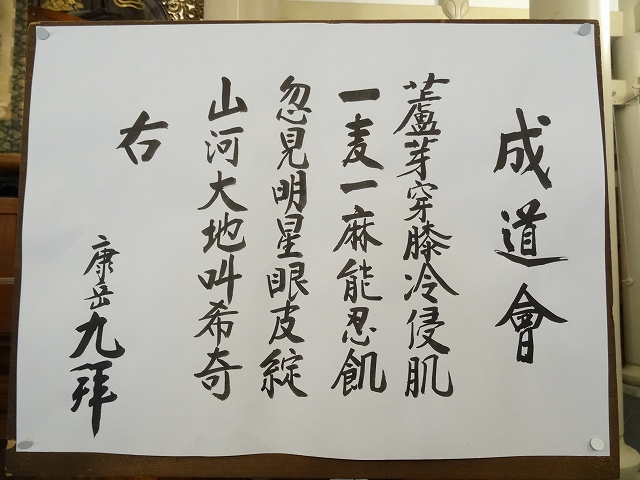 成道會
蘆芽穿膝冷侵肌
一麦一麻能忍飢
忽見明星眼皮綻
山河大地叫希奇
右
康岳九拜